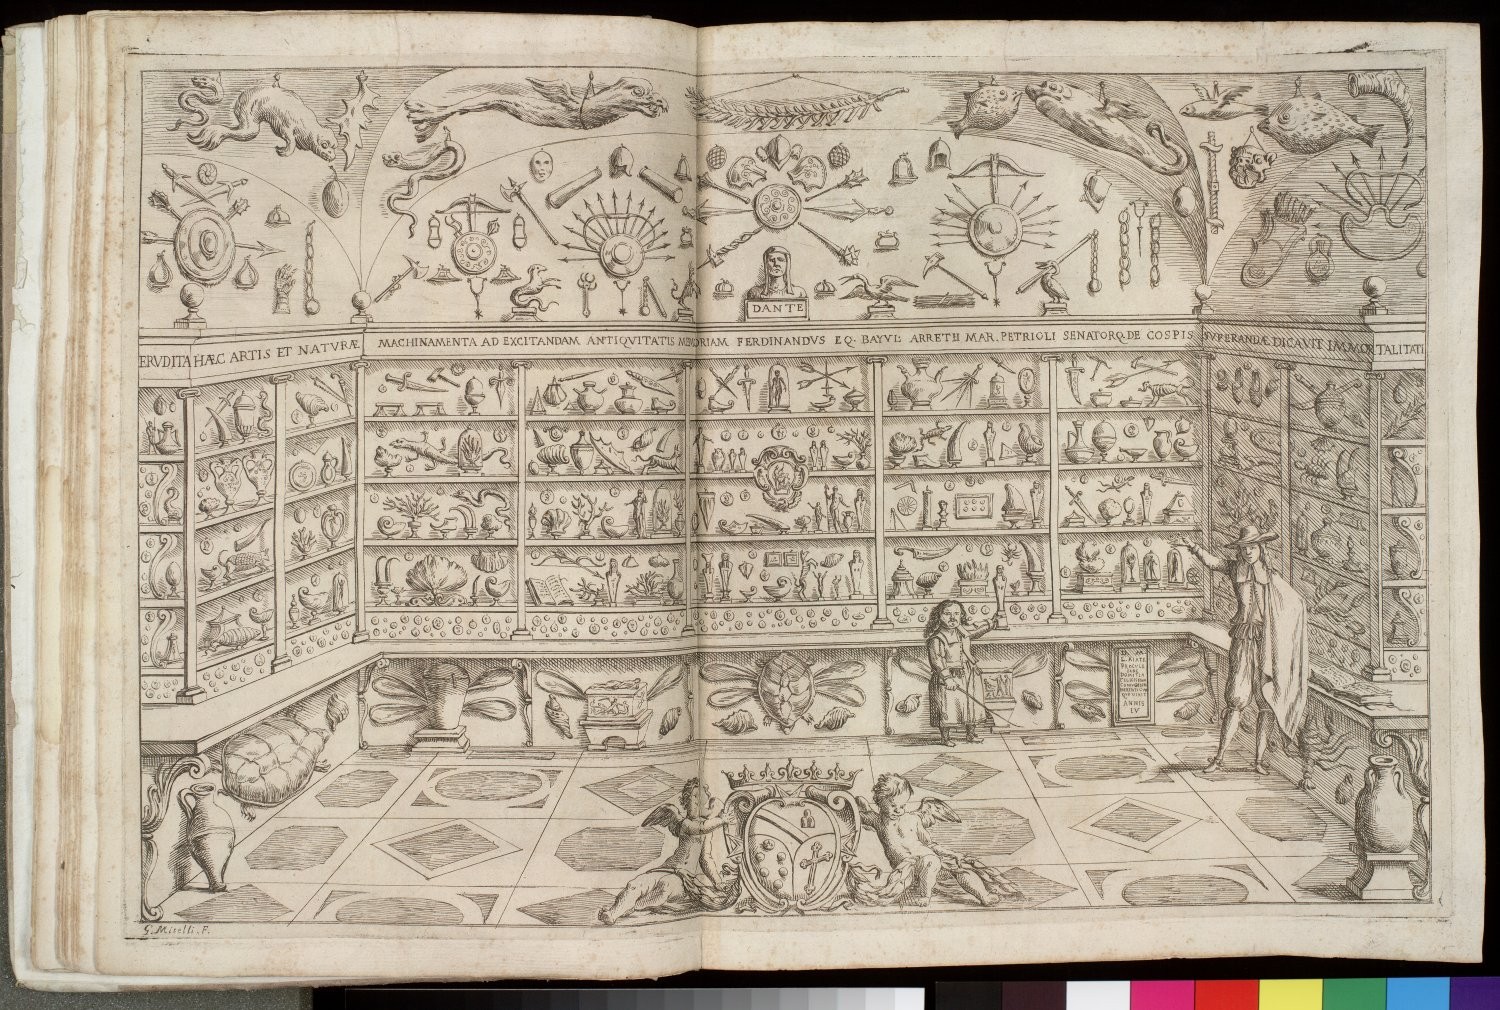 DANTE
ERVDITA HÆC ARTIS ET NATVRÆ MACHINAMENTA AD EXCITANDAM ANTIQVITATIS MEMORIAM FERDINANDVS EQ. BAYVL: ARRETII MAR. PETRIOLI SENATORQ. DE COSPIS SVPERANDÆ DICAVIT IMMORTALITATI
D. M
ANNIS
LV
G. Mitelli. F.